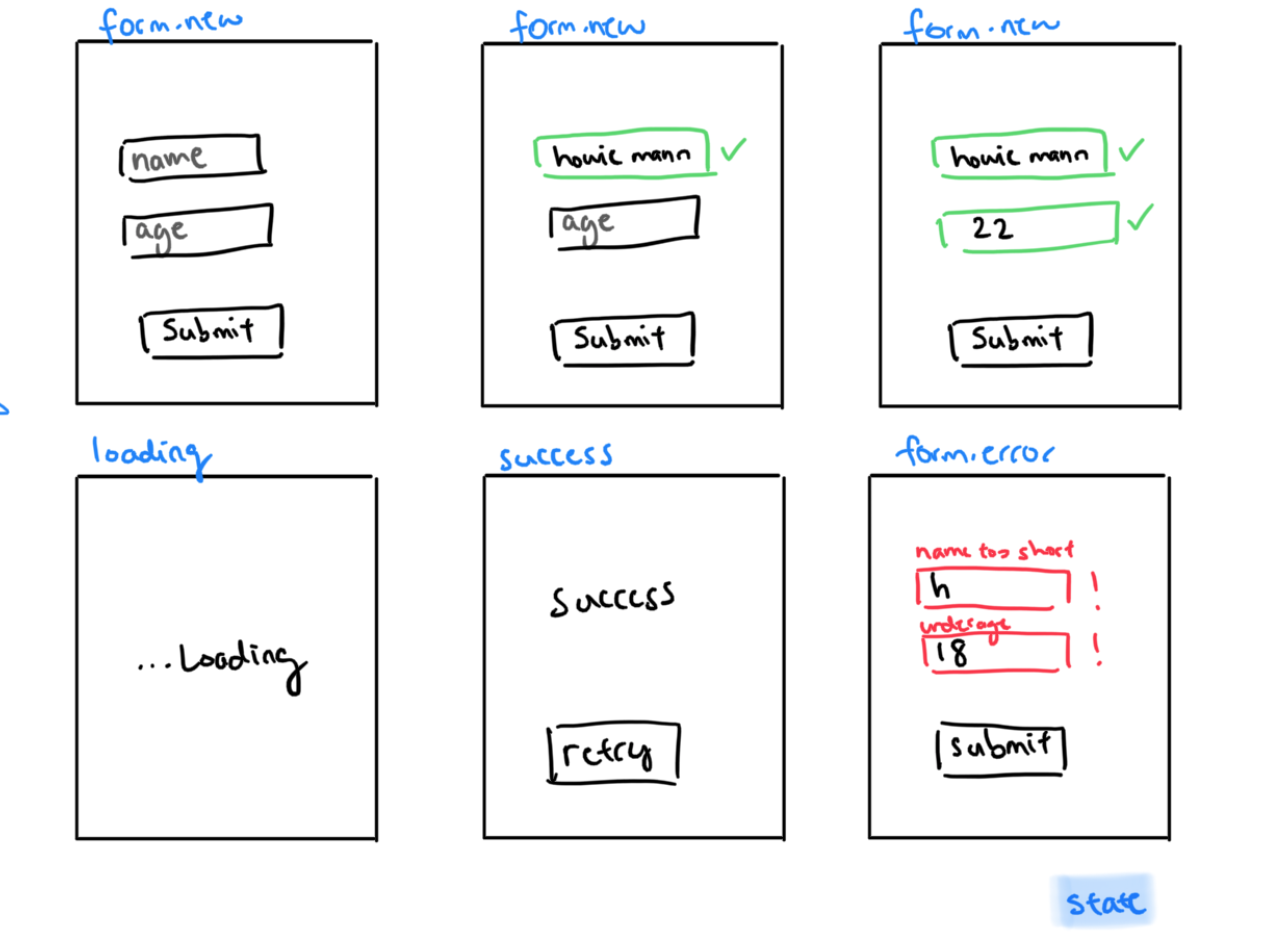 form.new
name
age
Submit
form.new
howie mann
age
Submit
form.new
howie mann
22
Submit
loading
...Loading
success
success
retry
form.error
name too short
h
!
underage
18
!
submit
state